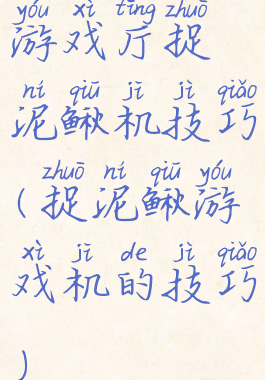 yóu xì tīng zhuō
游戏厅捉
ní qiū jī jì qiǎo
泥鳅机技巧
zhuō ní qiū yóu
(捉泥鳅游
xì jī de jì qiǎo
戏机的技巧
)